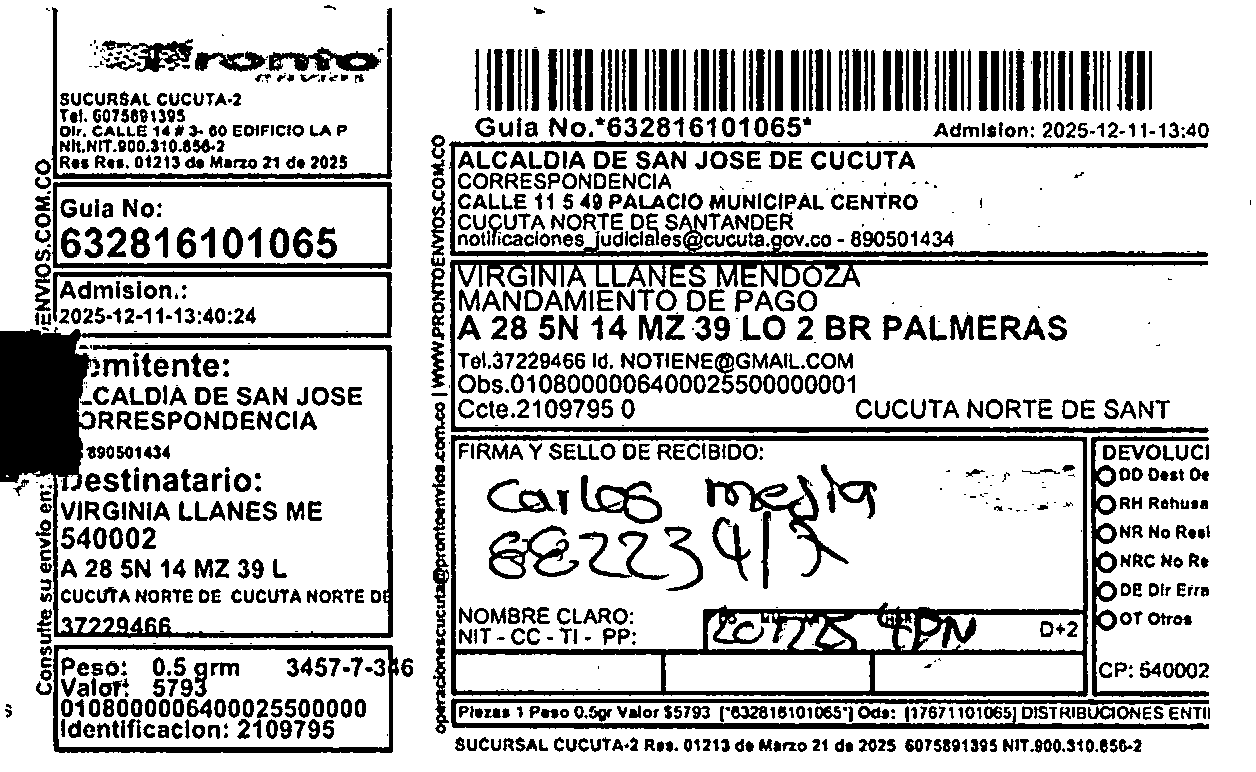 Pronto
envios
SUCURSAL CUCUTA-2
Tel. 6075891395
Dir. CALLE 14 # 3- 60 EDIFICIO LA P
Nit.NIT.900.310.856-2
Res Res. 01213 de Marzo 21 de 2025
Guia No:
632816101065
Admision.:
2025-12-11-13:40:24
emitente:
LCALDIA DE SAN JOSE
ORRESPONDENCIA
890501434
Destinatario:
VIRGINIA LLANES ME
540002
A 28 5N 14 MZ 39 L
CUCUTA NORTE DE CUCUTA NORTE DE
37229466
Peso: 0.5 grm 3457-7-346
Valor: 5793
0108000006400025500000
Identificacion: 2109795
Consulte su envio en:
ENVIOS.COM.CO
operacionescucuta@prontoenvios.com.co | WWW.PRONTOENVIOS.COM.CO
Guia No.*632816101065*
Admision: 2025-12-11-13:40
ALCALDIA DE SAN JOSE DE CUCUTA
CORRESPONDENCIA
CALLE 11 5 49 PALACIO MUNICIPAL CENTRO
CUCUTA NORTE DE SANTANDER
notificaciones_judiciales@cucuta.gov.co - 890501434
VIRGINIA LLANES MENDOZA
MANDAMIENTO DE PAGO
A 28 5N 14 MZ 39 LO 2 BR PALMERAS
Tel.37229466 Id. NOTIENE@GMAIL.COM
Obs.010800000640002550000​0001
Ccte.2109795 0 CUCUTA NORTE DE SANT
FIRMA Y SELLO DE RECIBIDO:
Carlos mejia
NOMBRE CLARO:
NIT - CC - TI - PP:
D+2
DEVOLUCI
DD Dest De
RH Rehusa
NR No Resi
NRC No Re
DE Dir Erra
OT Otros
CP: 540002
Piezas 1 Peso 0.5gr Valor $5793 ["632816101065"] Ods: [17671101065] DISTRIBUCIONES ENTI
SUCURSAL CUCUTA-2 Res. 01213 de Marzo 21 de 2025 6075891395 NIT.900.310.856-2